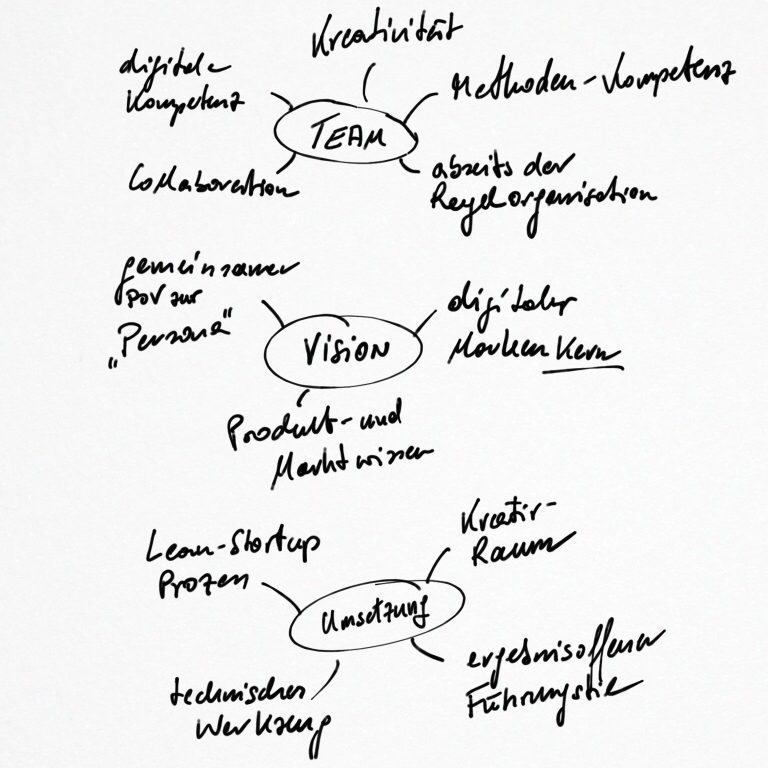 Kreativität
digitale
Kompetenz
Methoden-Kompetenz
TEAM
Collaboration
abseits der
Regelorganisation
gemeinsamer
POV zur
„Persona“
digitaler
Marken Kern
VISION
Produkt- und
Marktwissen
Lean-Startup
Prozess
Kreativ-
Raum
Umsetzung
technisches
Werkzeug
ergebnisoffener
Führungsstil